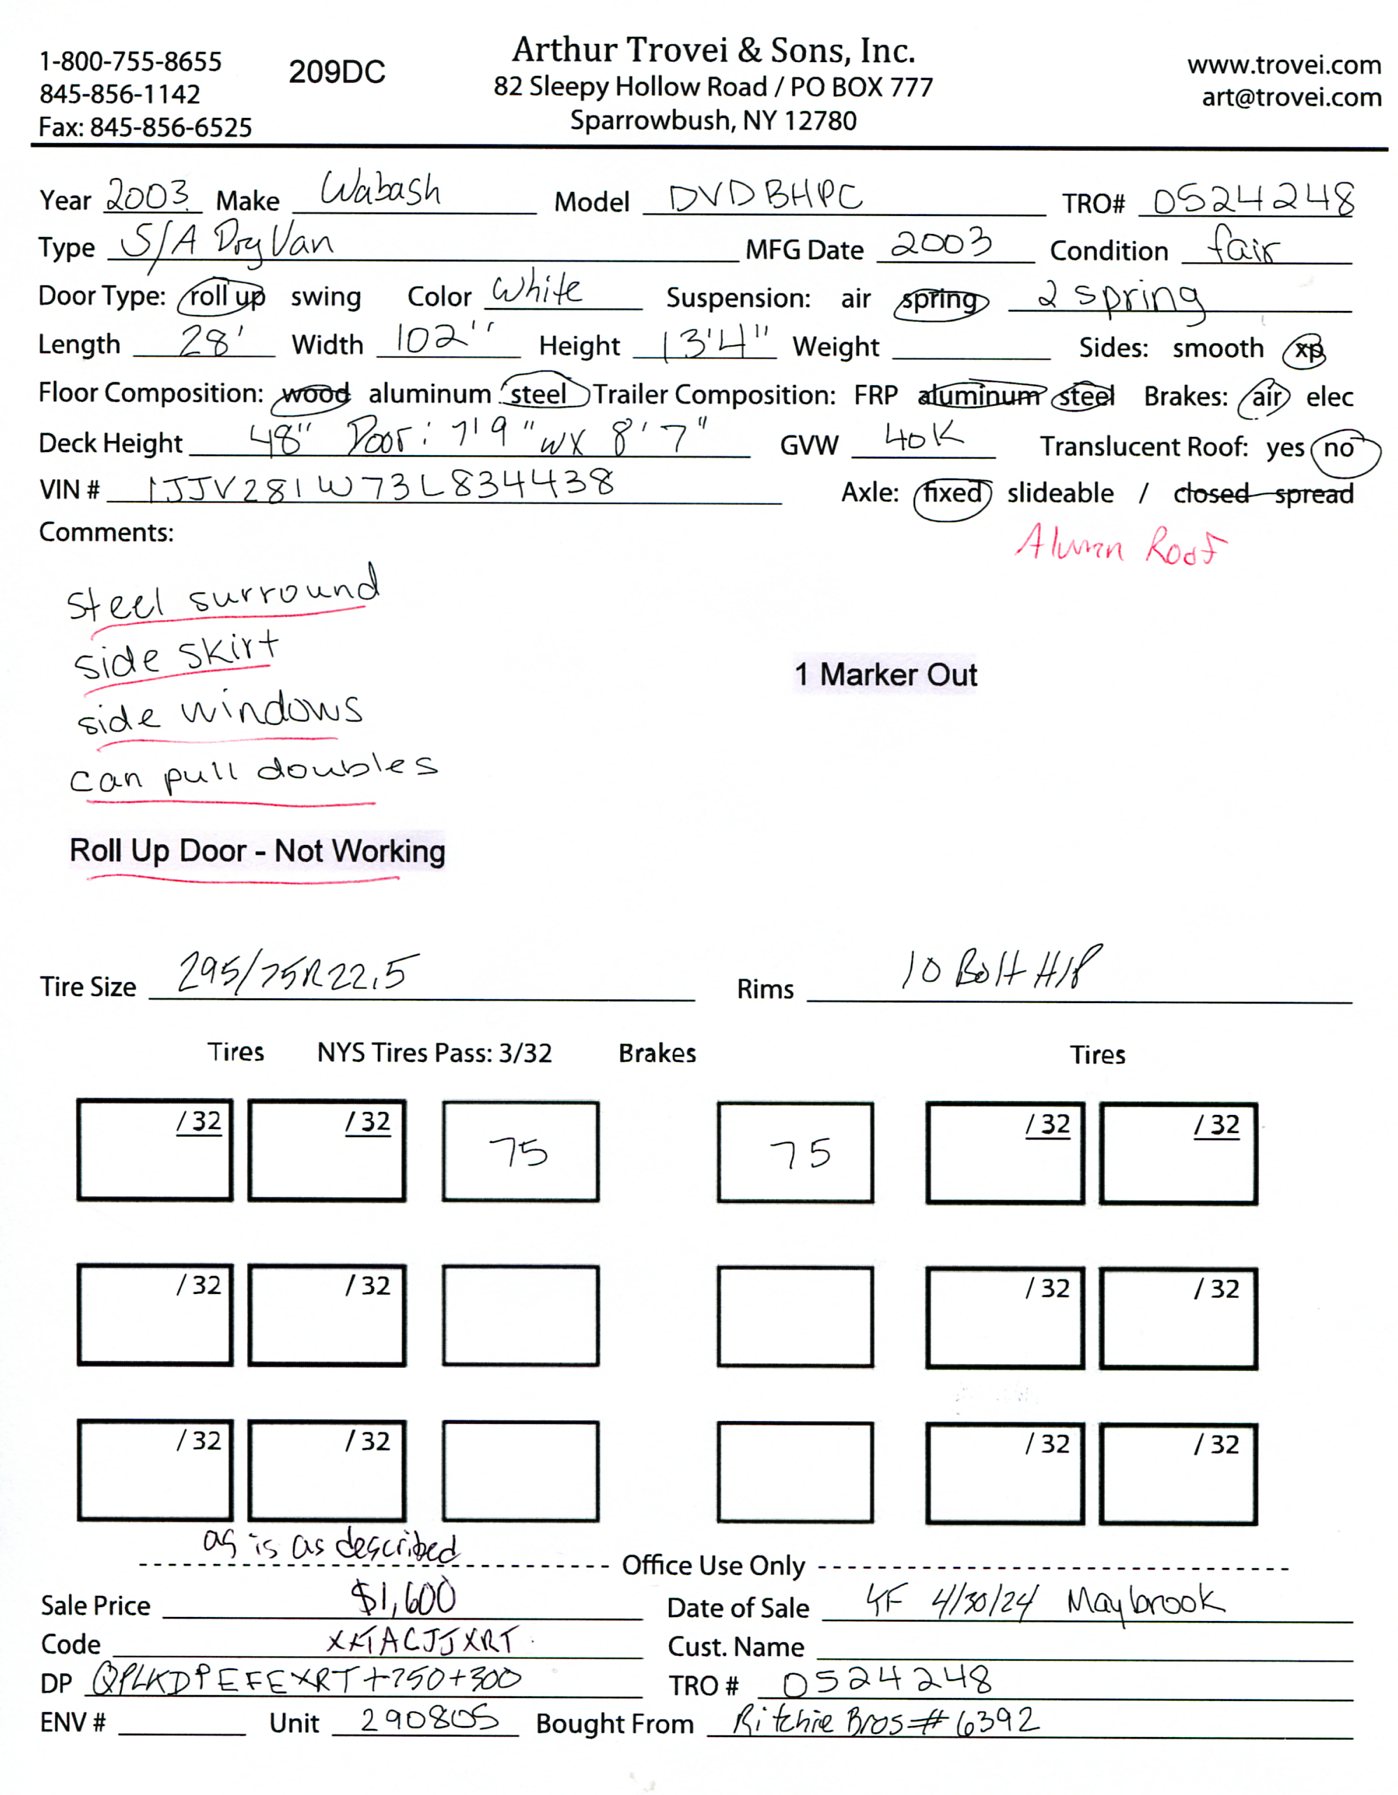 1-800-755-8655
845-856-1142
Fax: 845-856-6525
209DC
Arthur Trovei & Sons, Inc.
82 Sleepy Hollow Road / PO BOX 777
Sparrowbush, NY 12780
www.trovei.com
art@trovei.com
Year 2003 Make Wabash Model DVDBHPC TRO# 0524248
Type S/A Dry Van MFG Date 2003 Condition fair
Door Type: roll up swing Color White Suspension: air spring 2 spring
Length 28' Width 102'' Height 13'4" Weight Sides: smooth xp
Floor Composition: wood aluminum steel Trailer Composition: FRP aluminum steel Brakes: air elec
Deck Height 48" Door: 7'9"w x 8'7" GVW 40K Translucent Roof: yes no
VIN # 1JJV281W73L834438 Axle: fixed slideable / closed spread
Comments: Roof
steel surround
side skirt
1 Marker Out
side windows
can pull doubles
Roll Up Door - Not Working
Tire Size 295/75R22.5 Rims 10 Bolt H/P
Tires NYS Tires Pass: 3/32 Brakes Tires
/ 32 / 32 75 75 / 32 / 32
/ 32 / 32 / 32 / 32
/ 32 / 32 / 32 / 32
as is as described
Office Use Only
Sale Price $1,600 Date of Sale 4/30/24 Maybrook
Code Cust. Name
DP QPLKDPEFEXRT+750+300 TRO # 0524248
ENV # Unit 290805 Bought From Ritchie Bros # 6392